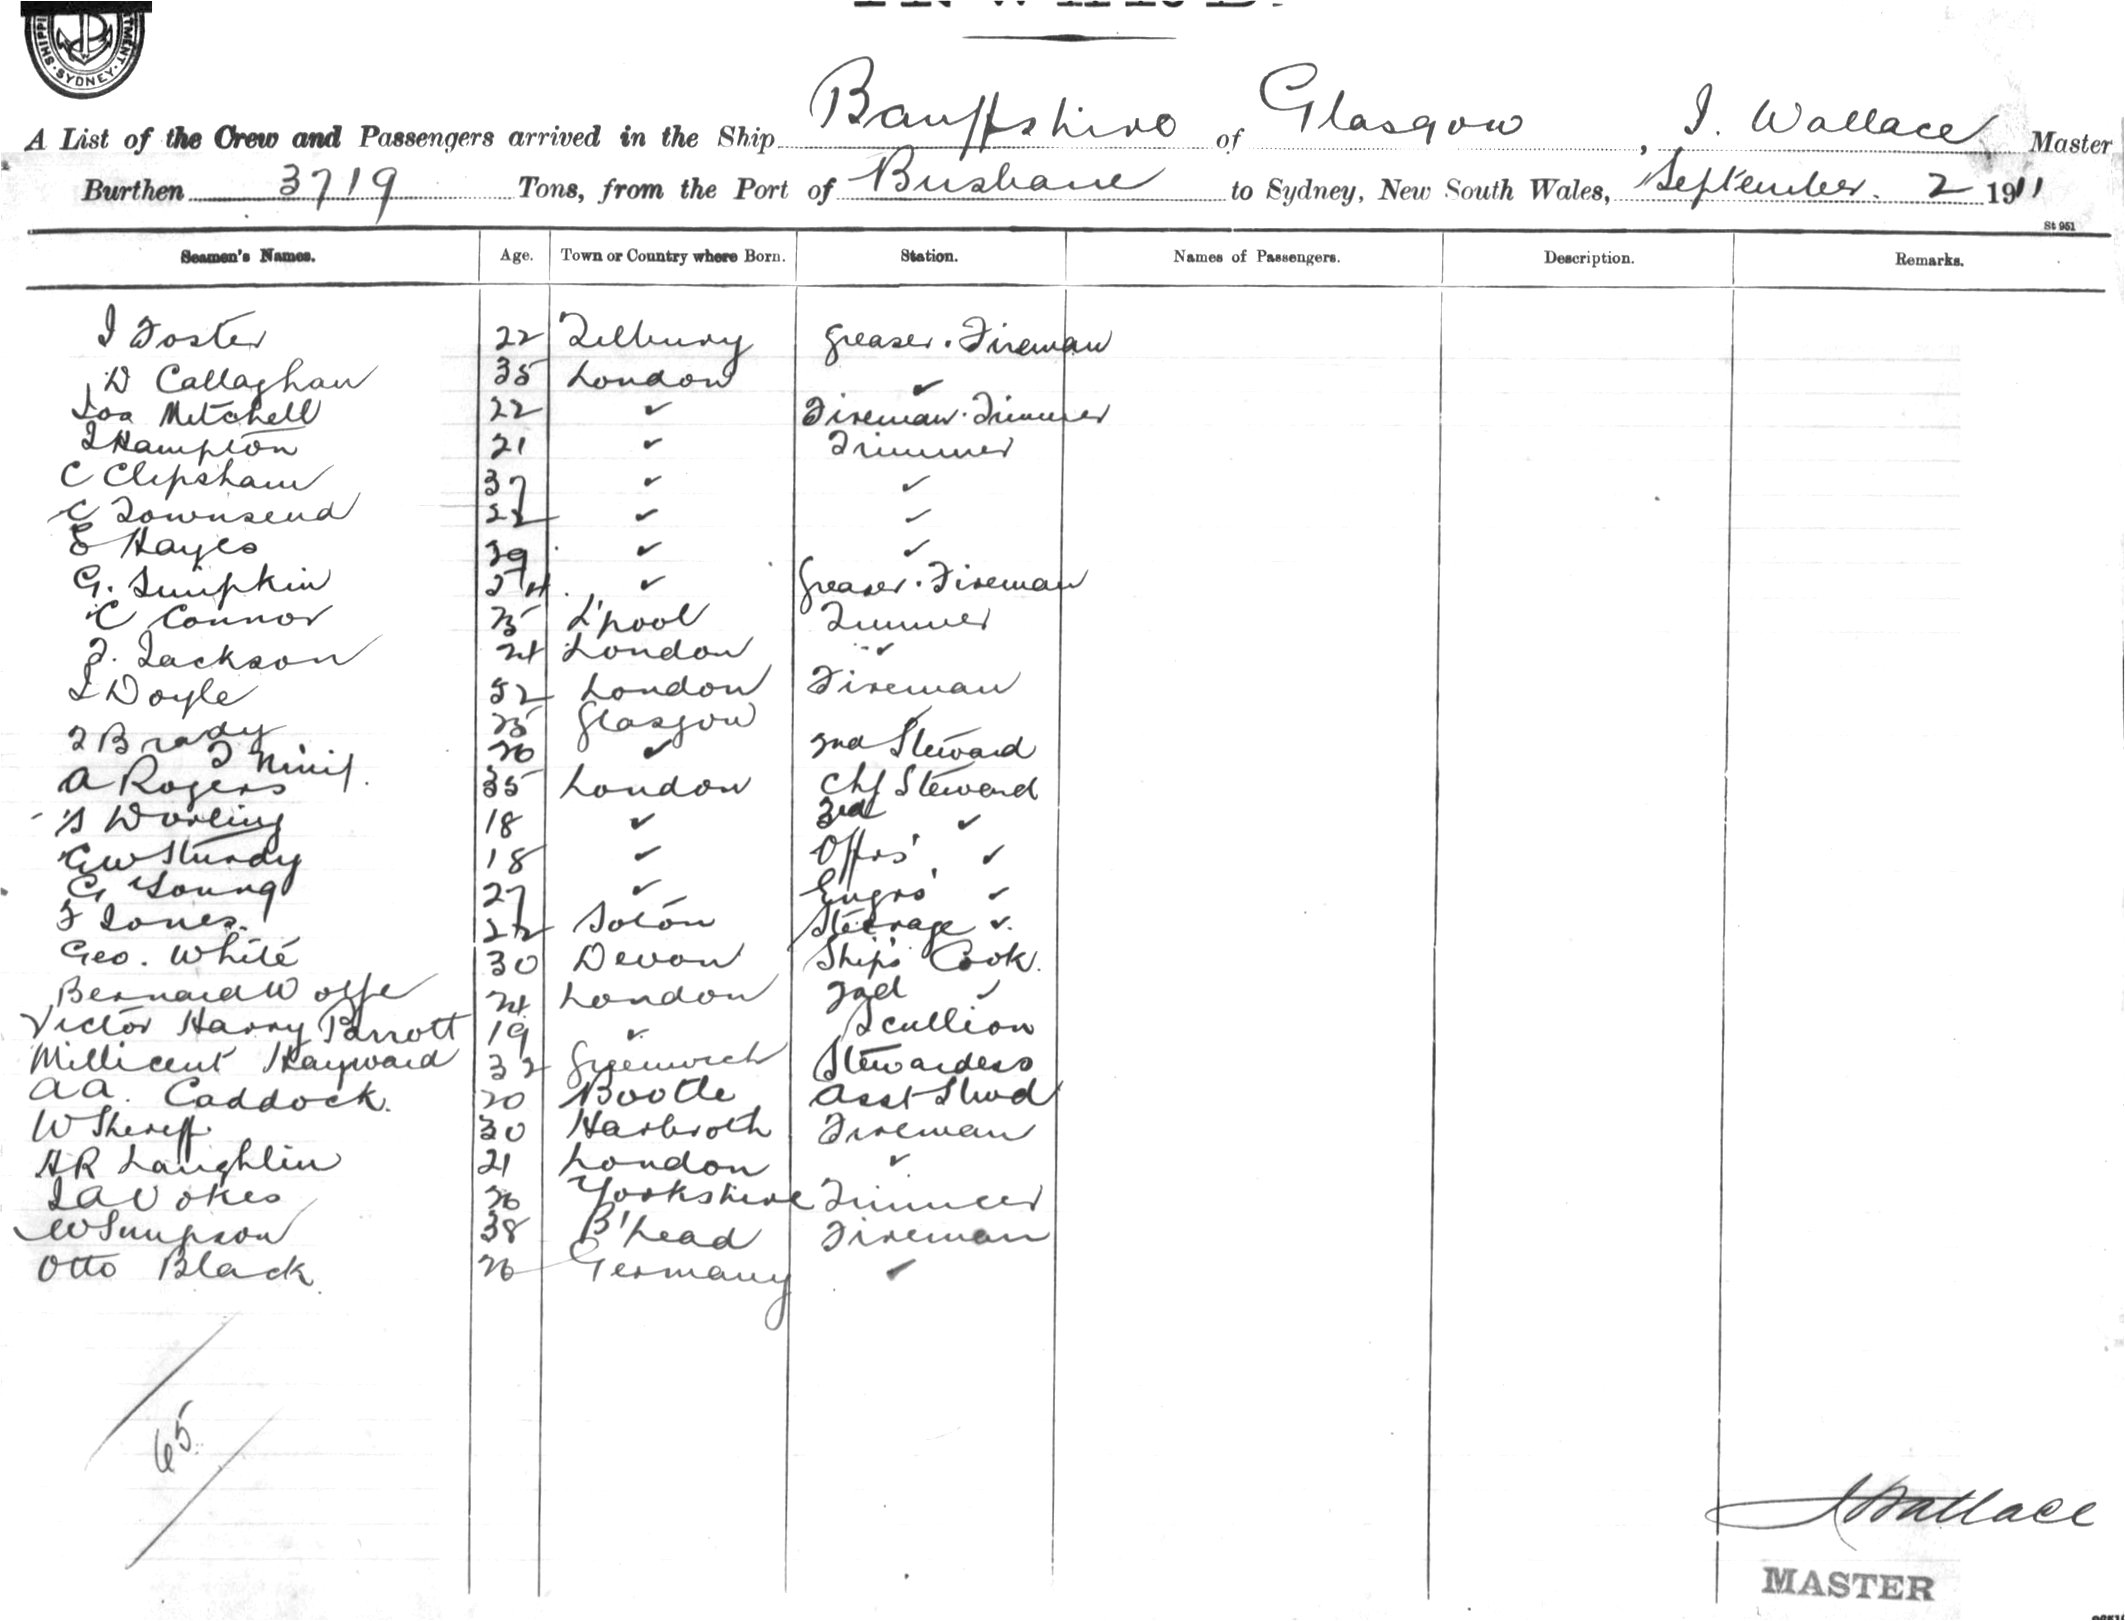 SHIPPI
TMENT
SYDNEY
INWARD.
A List of the Crew and Passengers arrived in the Ship Banffshire of Glasgow, J. Wallace Master
Burthen 3719 Tons, from the Port of Brisbane to Sydney, New South Wales, September 2 1911
St 951
Seamen's Names. Age. Town or Country where Born. Station. Names of Passengers. Description. Remarks.
J Foster 22 Tilbury Greaser. Fireman
D Callaghan 35 London ✓
Jos Mitchell 22 ✓ Fireman. Trimmer
J Hampton 21 ✓ Trimmer
C Clipsham 37 ✓ ✓
C Townsend 22 ✓ ✓
E Hayes 39 ✓ ✓
G. Simpkin 24 ✓ Greaser. Fireman
C Connor 25 L'pool Trimmer
J. Jackson 24 London ✓
J Doyle 32 London Fireman
J Brady 25 Glasgow ✓
26 ✓ 2nd Steward
A Rogers 35 London Chf Steward
S Dorling 18 ✓ 3rd ✓
G W Sturdy 18 ✓ Offrs' ✓
G Young 27 ✓ Engrs' ✓
F Jones. 22 Soton Steerage ✓
Geo. White 30 Devon Ship's Cook.
Bernard Wolfe 24 London 2nd ✓
Victor Harry Parrott 19 ✓ Scullion
Millicent Hayward 32 Greenwich Stewardess
A A. Caddock. 20 Bootle Asst Stwd
W Shereff. 30 Harbroth Fireman
H R Laughlin 21 London ✓
J A Vokes 26 Yorkshire Trimmer
W Simpson 38 B'head Fireman
Otto Black 26 Germany ✓
65
J Wallace
MASTER